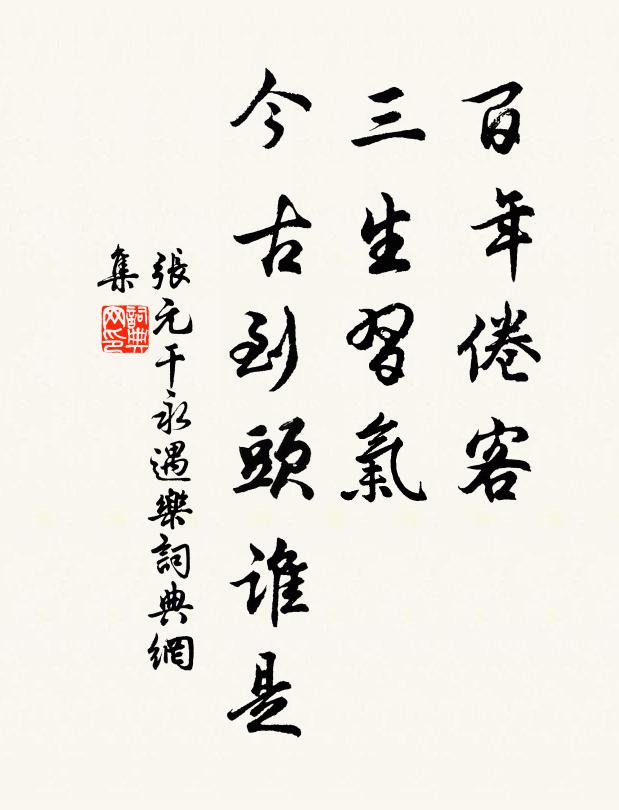 百年倦客
三生習氣
今古到頭誰是
張元干永遇樂詞典網
集
詞典网印